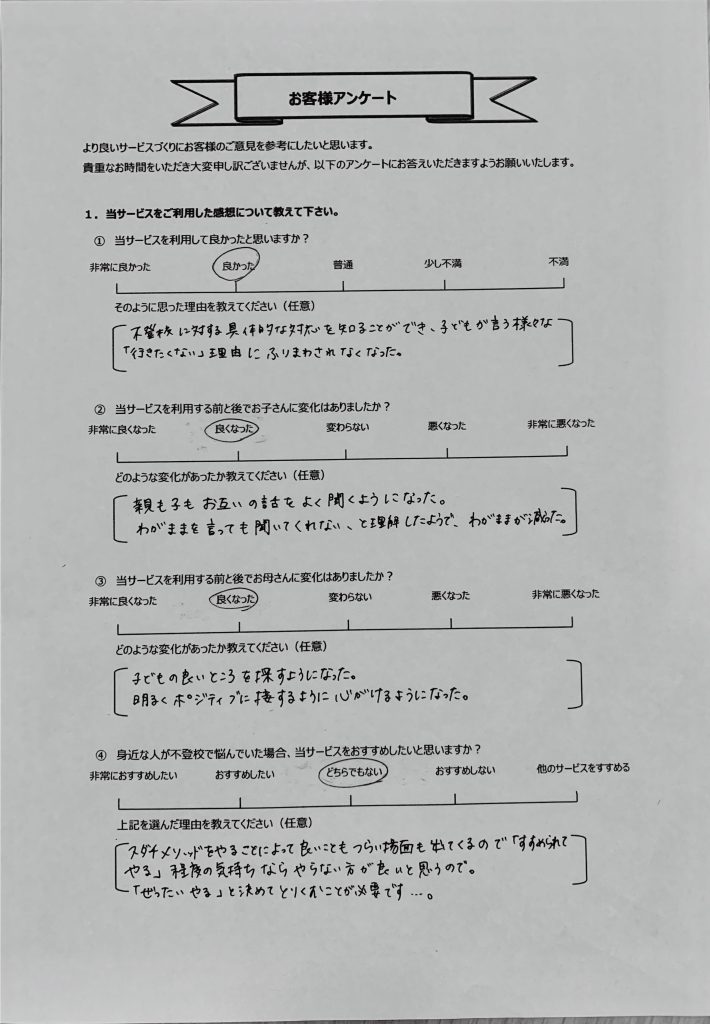 お客様アンケート
より良いサービスづくりにお客様のご意見を参考にしたいと思います。
貴重なお時間をいただき大変申し訳ございませんが、以下のアンケートにお答えいただきますようお願いいたします。
1．当サービスをご利用した感想について教えて下さい。
① 当サービスを利用して良かったと思いますか？
非常に良かった 良かった 普通 少し不満 不満
そのように思った理由を教えてください（任意）
不登校に対する具体的な対応を知ることができ、子どもが言う様々な
「行きたくない」理由にふりまわされなくなった。
② 当サービスを利用する前と後でお子さんに変化はありましたか？
非常に良くなった 良くなった 変わらない 悪くなった 非常に悪くなった
どのような変化があったか教えてください（任意）
親も子もお互いの話をよく聞くようになった。
わがままを言っても聞いてくれない、と理解したようで、わがままが減った。
③ 当サービスを利用する前と後でお母さんに変化はありましたか？
非常に良くなった 良くなった 変わらない 悪くなった 非常に悪くなった
どのような変化があったか教えてください（任意）
子どもの良いところを探すようになった。
明るくポジティブに接するように心がけるようになった。
④ 身近な人が不登校で悩んでいた場合、当サービスをおすすめしたいと思いますか？
非常におすすめしたい おすすめしたい どちらでもない おすすめしない 他のサービスをすすめる
上記を選んだ理由を教えてください（任意）
スダチメソッドをやることによって良いこともつらい場面も出てくるので「すすめられて
やる」程度の気持ちならやらない方が良いと思うので。
「ぜったいやる」と決めてとりくむことが必要です…。